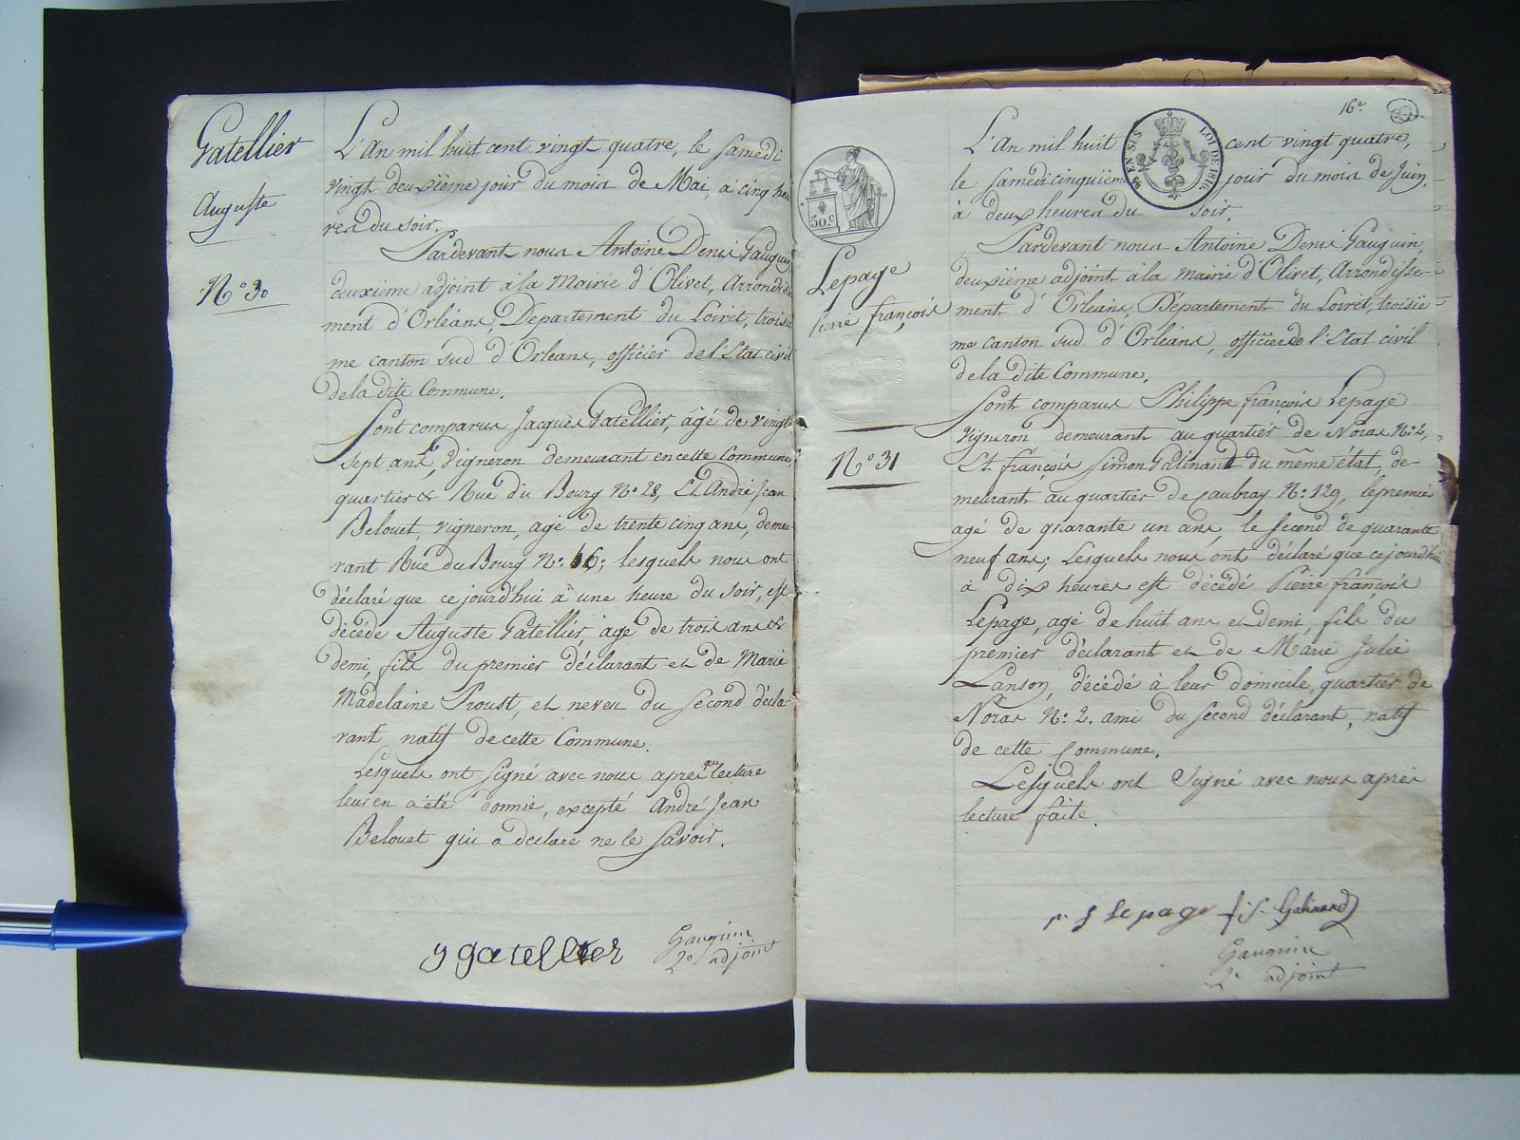 Gatellier
Auguste
N.° 30
L'An mil huit cent vingt quatre, le Samedi
vingt deuxième jour du mois de Mai, à cinq heu
res du soir.
Pardevant nous Antoine Denis Gauguin,
deuxième adjoint à la Mairie d'Olivet, Arrondisse
ment d'Orléans, Département du Loiret, troisiè
me canton sud d'Orléans, officier de l'Etat civil
de la dite Commune.
Sont comparus Jacques Gatellier, âgé de vingt
sept ans, Vigneron demeurant en cette Commune,
quartier & Rue du Bourg N.° 28, Et André Jean
Belouet, vigneron, agé de trente cinq ans, demeu
rant Rue du Bourg N.° 66; lesquels nous ont
déclaré que ce jourd'hui à une heure du soir, est
décédé Auguste Gatellier, agé de trois ans &
demi, fils du premier déclarant et de Marie
Madelaine Proust, et neveu du second décla-
rant, natif de cette Commune.
Lesquels ont signé avec nous après que lecture
leur en a été donnée, excepté André Jean
Belouet qui a déclaré ne le savoir.
J gatellier
Gauguin
2e adjoint
16e
EN SUS
LOI DE 1816
30 c
Lepage
Pierre françois
N.° 31
L'An mil huit cent vingt quatre,
le samedi cinquième jour du mois de Juin,
à deux heures du soir.
Pardevant nous Antoine Denis Gauguin,
deuxième adjoint à la mairie d'Olivet, Arrondisse-
ment d'Orléans, Département du Loiret, troisiè-
me canton sud d'Orléans, officier de l'Etat civil
de la dite Commune.
Sont comparus Philippe françois Lepage
Vigneron demeurant au quartier de Noras N.° 2,
Et françois Simon Galinand du même état, de-
meurant au quartier de Caubray N.° 129, le premier
agé de quarante un ans, le second de quarante
neuf ans; Lesquels nous ont déclaré que ce jourd'hui
à dix heures est décédé Pierre françois
Lepage, agé de huit ans et demi, fils du
premier déclarant et de Marie Julie
Lanson, décédé à leur domicile, quartier de
Noras N.° 2. ami du second déclarant, natif
de cette Commune.
Lesquels ont Signé avec nous après
lecture faite.
p f Lepage f. s. Galinand
Gauguin
2e adjoint